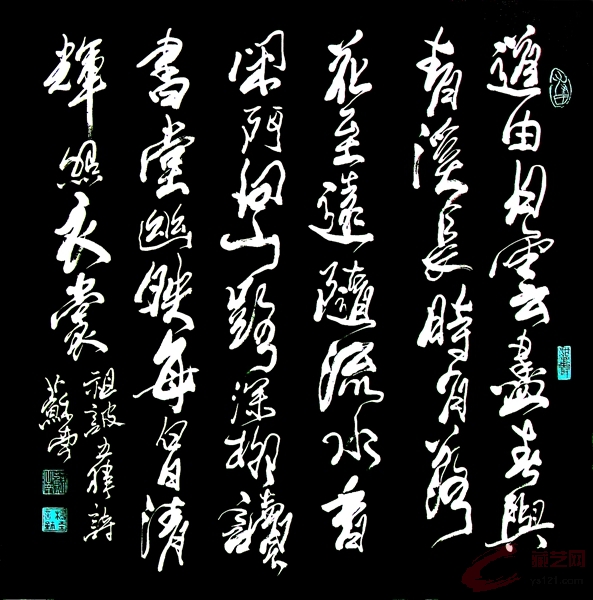 道由白雲盡春與
青溪長時有落
花至遠隨流水香
閑門向山路深柳讀
書堂幽映每白日清
輝照衣裳
祖詠五律詩
蘇
藏艺网